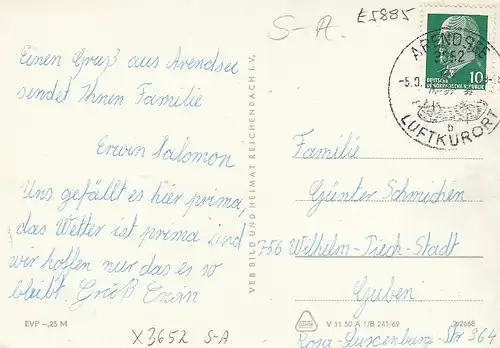 S-A.
E5885
ARENDSEE
3552
-5.9.
b
LUFTKURORT
10
DEUTSCHE
DEMOKRATISCHE REPUBLIK
Einen Gruß aus Arendsee
sendet Ihnen Familie
Erwin Salomon
Uns gefällt es hier prima,
das Wetter ist prima und
wir hoffen nur das es so
bleibt. Gruß Erwin
VEB BILD UND HEIMAT REICHENBACH I.V.
Familie
Günter Schmichen
756 Wilhelm-Pieck-Stadt
Guben
Rosa-Luxenburg-Str 364
EVP –,25 M
X3652 S-A
V 11 50 A 1/B 241/69